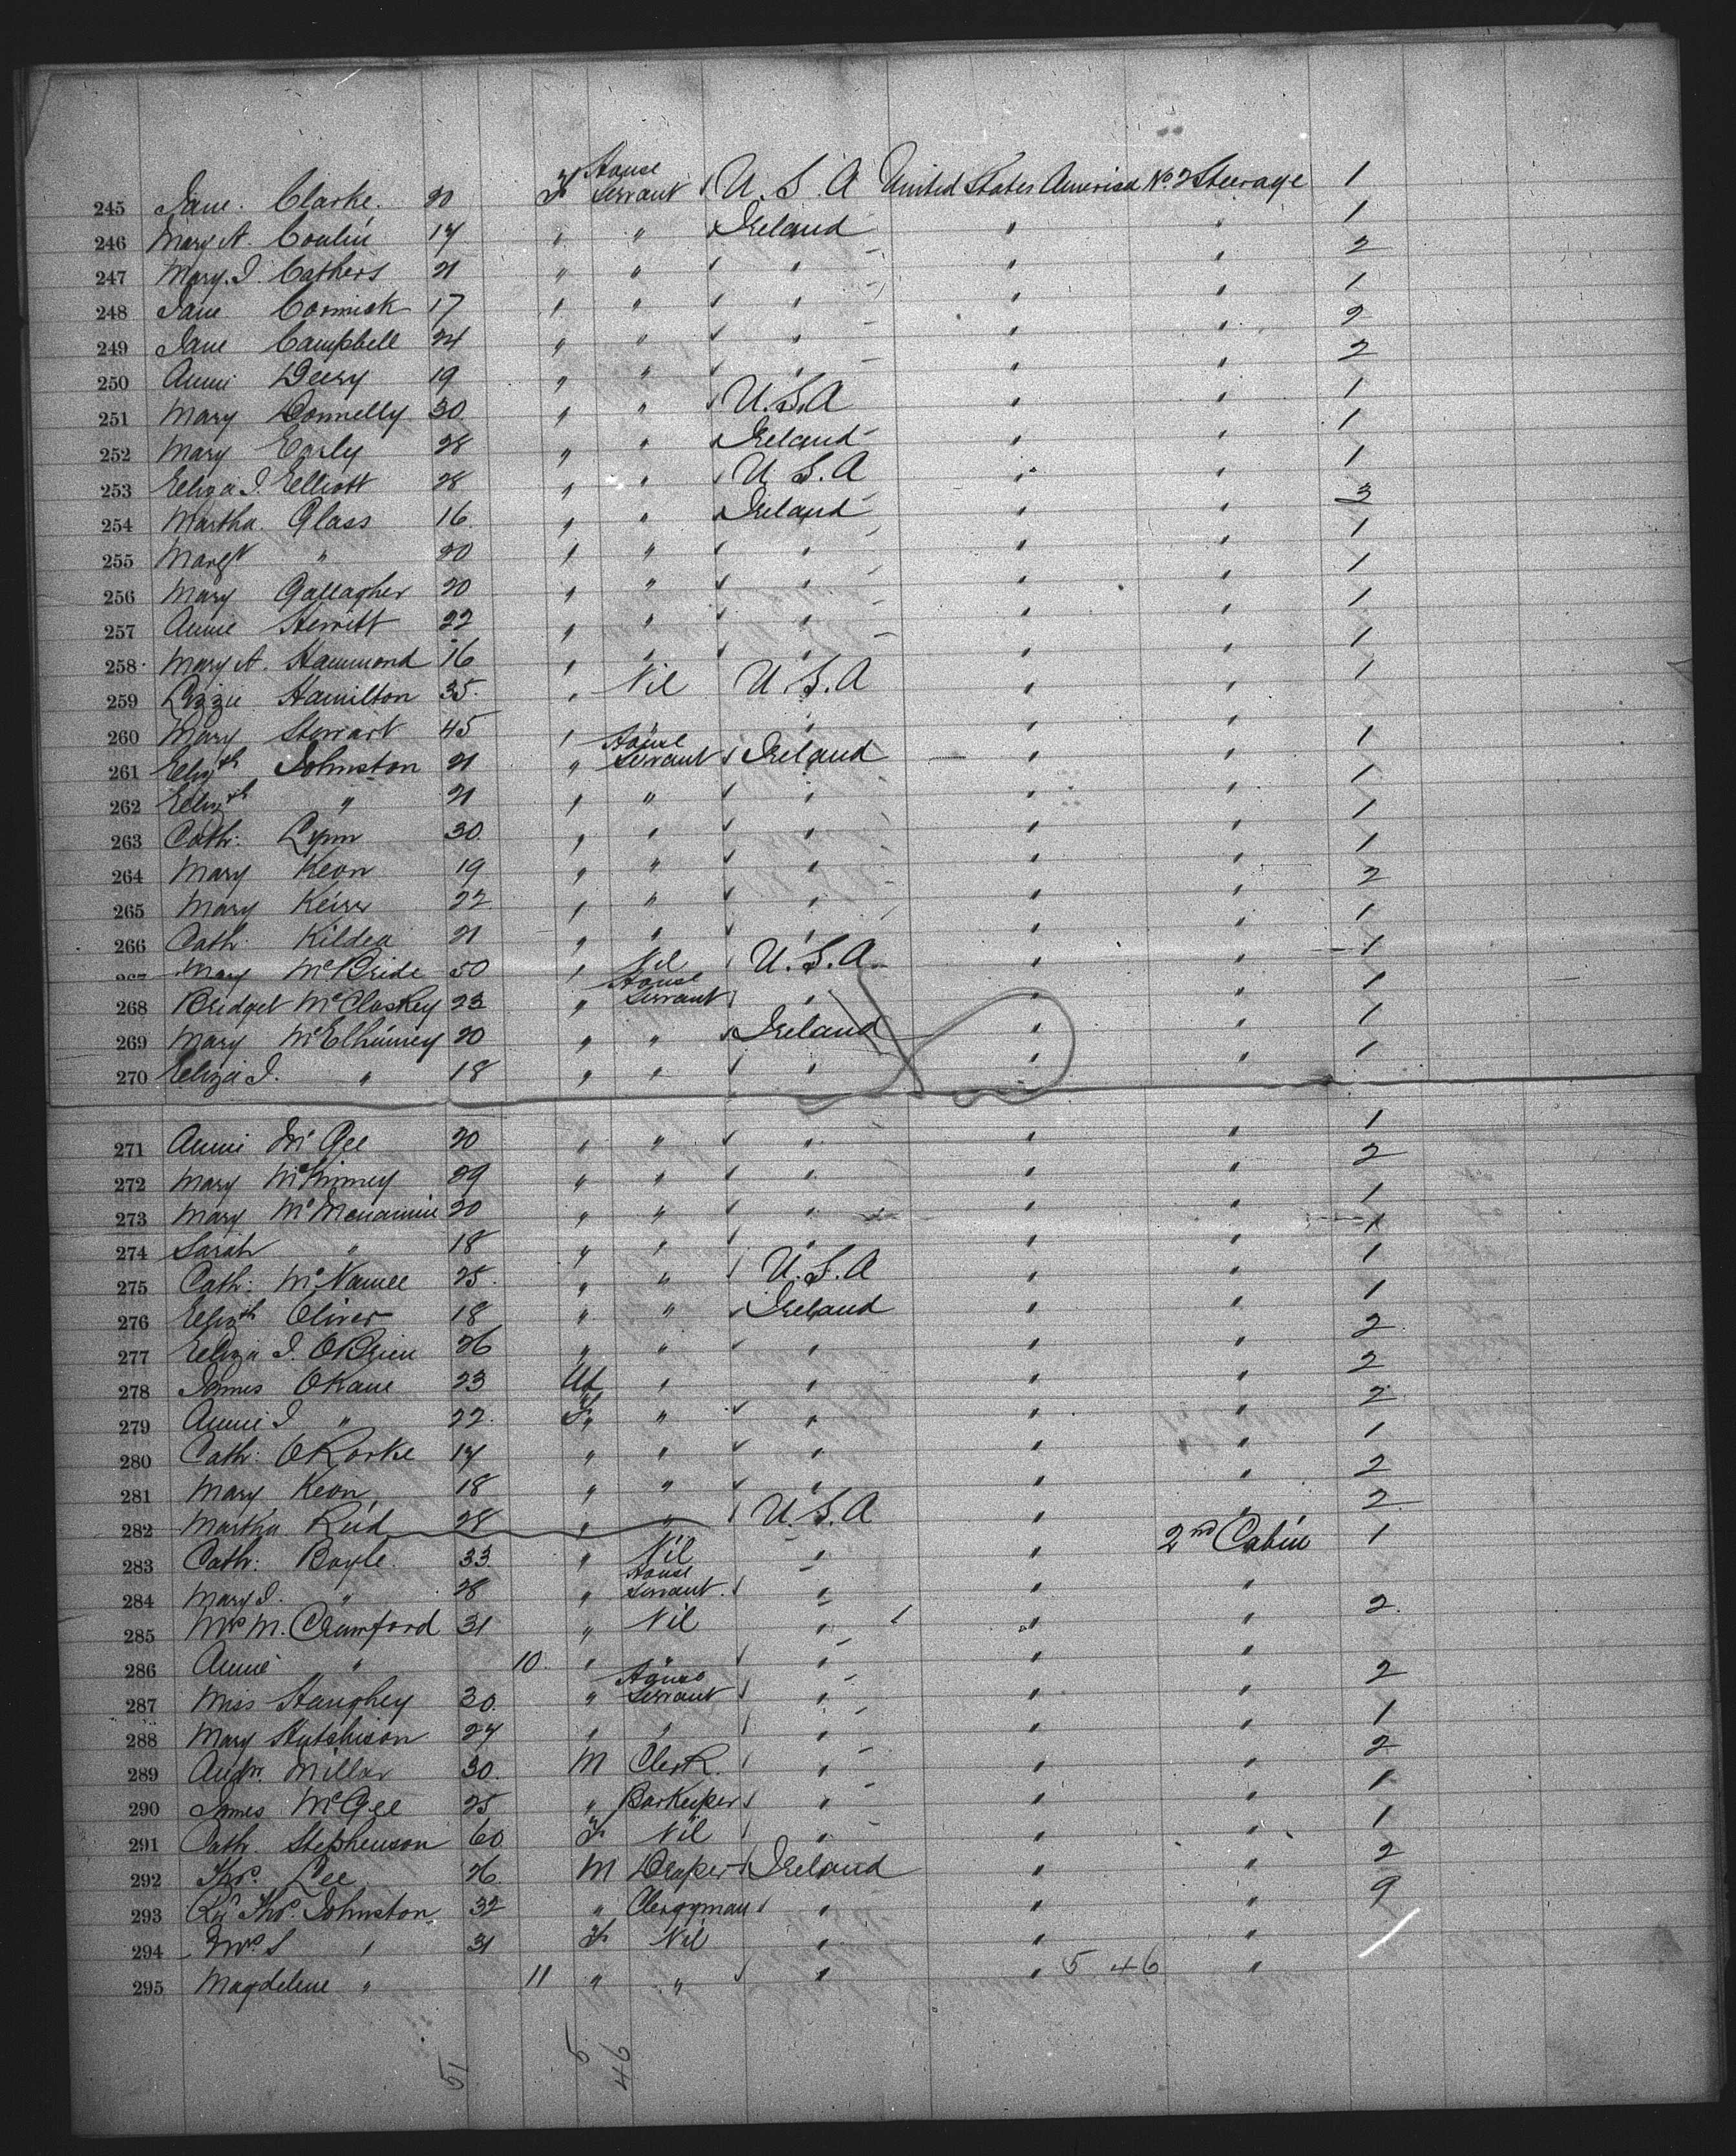 245 Jane Clarke 20 F House Servant U.S.A United States America No. 2 Steerage 1
246 Mary A. Conlin 17 " " Ireland " " 1
247 Mary J. Cathers 21 " " " " " 2
248 Jane Cormick 17 " " " " " 1
249 Jane Campbell 24 " " " " " 2
250 Annie Deery 19 " " " " " 2
251 Mary Donnelly 30 " " U.S.A " " 1
252 Mary Early 28 " " Ireland " " 1
253 Eliza J. Elliott 28 " " U.S.A " " 1
254 Martha Glass 16 " " Ireland " " 3
255 Margt " 20 " " " " " 1
256 Mary Gallagher 20 " " " " " 1
257 Annie Hewitt 22 " " " " " 1
258 Mary A. Hammond 16 " " " " " 1
259 Lizzie Hamilton 35 " Nil U.S.A " " 1
260 Mary Stewart 45 " " " " "
261 Elizth Johnston 21 " House Servant Ireland " " 1
262 Elizth " 21 " " " " " 1
263 Cath. Lynn 30 " " " " " 1
264 Mary Keon 19 " " " " " 1
265 Mary 22 " " " " " 2
266 Cath. Kildea 21 " " " " " 1
267 Mary McBride 50 " Nil U.S.A " " 1
268 Bridget McCloskey 23 " House Servant " " " 1
269 Mary McElhinney 20 " " Ireland " " 1
270 Eliza J. " 18 " " " " " 1
271 Annie McGee 20 " " " " " 1
272 Mary McKinney 29 " " " " " 2
273 Mary McMenamin 20 " " " " " 1
274 Sarah " 18 " " " " " 1
275 Cath. McNamee 25 " " U.S.A " " 1
276 Elizth Oliver 18 " " Ireland " " 1
277 Eliza J. OBrien 26 " " " " " 2
278 James OKane 23 M " " " " 2
279 Annie J " 22 F " " " " 2
280 Cath. ORorke 17 " " " " " 1
281 Mary Keon 18 " " " " " 2
282 Martha Reid 28 " " U.S.A " " 2
283 Cath. Boyle 33 " Nil " " 2nd Cabin 1
284 Mary J. " 28 " House Servant " " "
285 Mrs M. Crumford 31 " Nil " " " 2
286 Annie " 10 " " " " "
287 Miss Haughey 30 " House Servant " " " 2
288 Mary Hutchison 27 " " " " " 1
289 Andw. Millar 30 M Clerk " " " 2
290 James McGee 25 " Barkeeper " " " 1
291 Cath. Stephenson 60 F Nil " " " 1
292 Thos. Lee 26 M Draper Ireland " " 2
293 Rev Thos. Johnston 32 " Clergyman " " " 9
294 Mrs S " 31 F Nil " " "
295 Magdelene " 11 " " " " 5 46 "
51 5 46